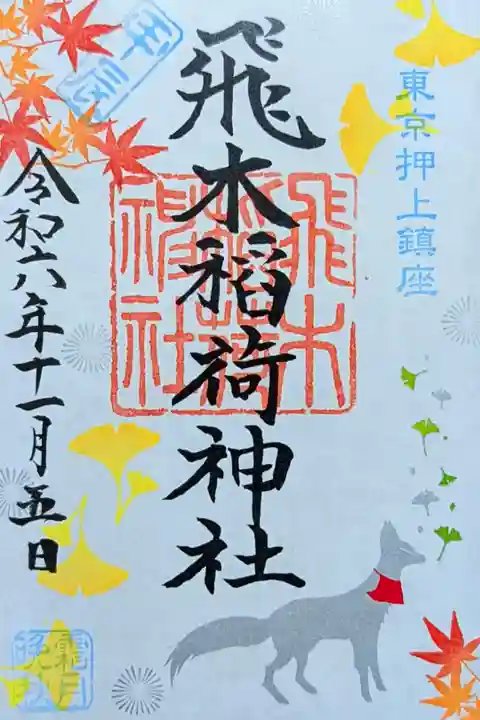 東京押上鎮座
飛木稲荷神社
飛木稲荷神社
令和六年十一月五日
霜月
晩秋